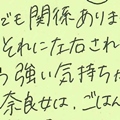 でも関係ありま
それに左右され
う強い気持ちだ
奈良女は、ごはん